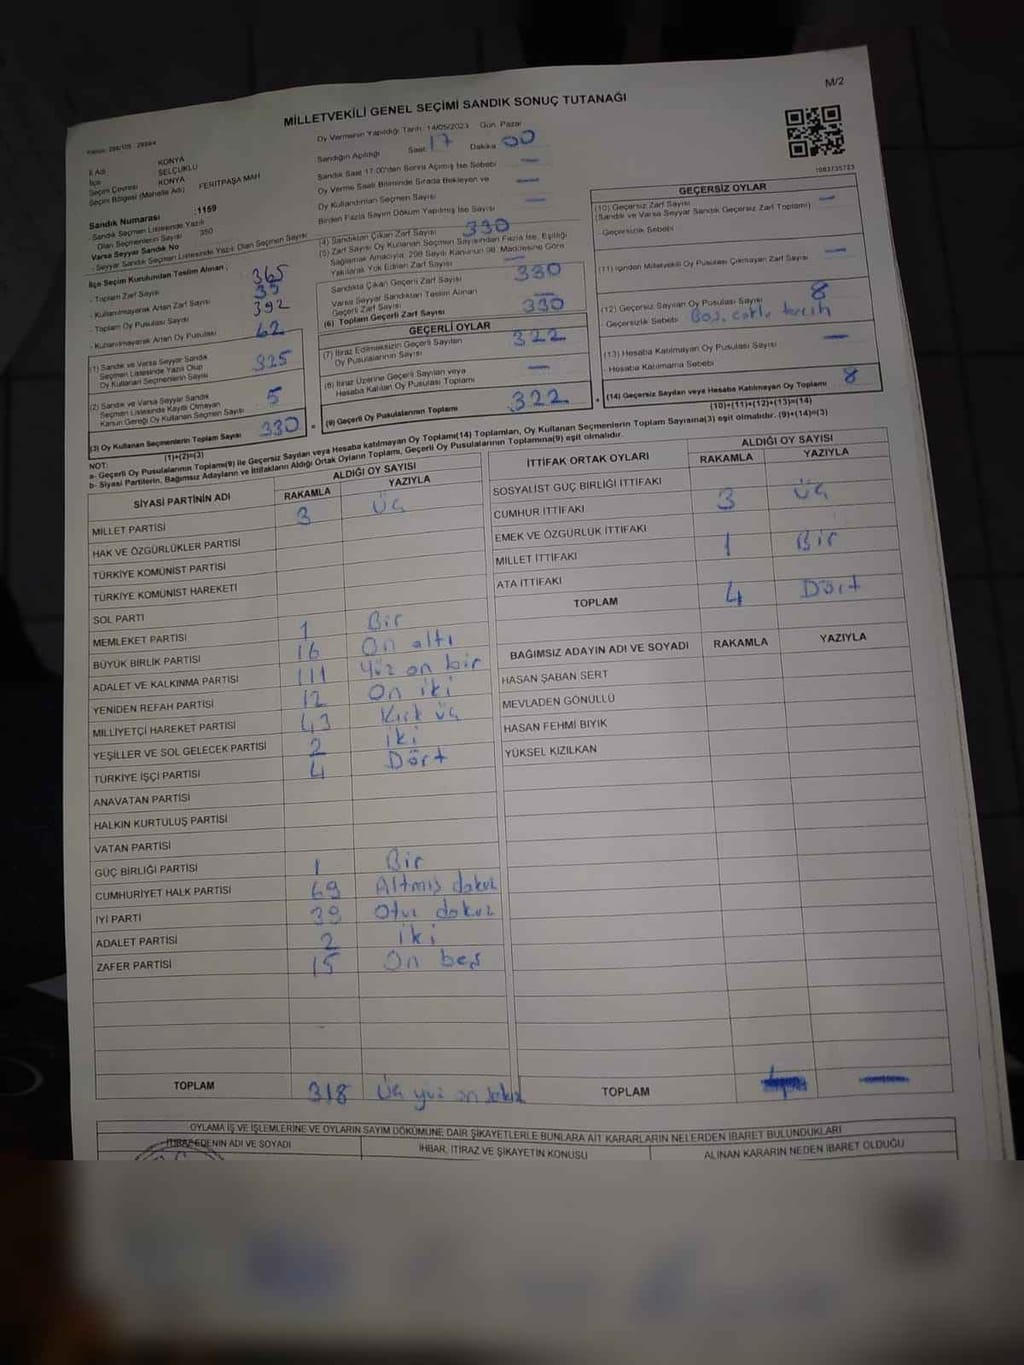 M/2
MİLLETVEKİLİ GENEL SEÇİMİ SANDIK SONUÇ TUTANAĞI
Oy Vermenin Yapıldığı Tarih: 14/05/2023 Gün: Pazar
Sandığın Açıldığı Saat 17 Dakika 00
Sandık Saat 17:00'den Sonra Açılmış İse Sebebi —
Oy Verme Saati Bitiminde Sırada Bekleyen ve
Oy Kullandırılan Seçmen Sayısı —
Birden Fazla Sayım Döküm Yapılmış İse Sayısı —
İl Adı KONYA
İlçe SELÇUKLU
Seçim Çevresi KONYA
Seçim Bölgesi (Mahalle Adı) FERİTPAŞA MAH
Sandık Numarası :1159
- Sandık Seçmen Listesinde Yazılı
Olan Seçmenlerin Sayısı 350
Varsa Seyyar Sandık No
- Seyyar Sandık Seçmen Listesinde Yazılı Olan Seçmen Sayısı
İlçe Seçim Kurulundan Teslim Alınan ;
- Toplam Zarf Sayısı 365
- Kullanılmayarak Artan Zarf Sayısı 35
- Toplam Oy Pusulası Sayısı 392
- Kullanılmayarak Artan Oy Pusulası 62
(1) Sandık ve Varsa Seyyar Sandık
Seçmen Listesinde Yazılı Olup
Oy Kullanan Seçmenlerin Sayısı 325
(2) Sandık ve Varsa Seyyar Sandık
Seçmen Listesinde Kayıtlı Olmayan
Kanun Gereği Oy Kullanan Seçmen Sayısı 5
(3) Oy Kullanan Seçmenlerin Toplam Sayısı 330
(1)+(2)=(3)
(4) Sandıktan Çıkan Zarf Sayısı 330
(5) Zarf Sayısı Oy Kullanan Seçmen Sayısından Fazla İse, Eşitliği
Sağlamak Amacıyla, 298 Sayılı Kanunun 98. Maddesine Göre
Yakılarak Yok Edilen Zarf Sayısı —
Sandıkta Çıkan Geçerli Zarf Sayısı 330
Varsa Seyyar Sandıktan Teslim Alınan
Geçerli Zarf Sayısı —
(6) Toplam Geçerli Zarf Sayısı 330
GEÇERLİ OYLAR
(7) İtiraz Edilmeksizin Geçerli Sayılan
Oy Pusulalarının Sayısı 322
(8) İtiraz Üzerine Geçerli Sayılan veya
Hesaba Katılan Oy Pusulası Toplamı —
(9) Geçerli Oy Pusulalarının Toplamı 322
1083735723
GEÇERSİZ OYLAR
(10) Geçersiz Zarf Sayısı —
(Sandık ve Varsa Seyyar Sandık Geçersiz Zarf Toplamı)
- Geçersizlik Sebebi
(11) İçinden Milletvekili Oy Pusulası Çıkmayan Zarf Sayısı —
(12) Geçersiz Sayılan Oy Pusulası Sayısı 8
- Geçersizlik Sebebi Boş, çoklu tercih
(13) Hesaba Katılmayan Oy Pusulası Sayısı —
- Hesaba Katılmama Sebebi
(14) Geçersiz Sayılan veya Hesaba Katılmayan Oy Toplamı 8
(10)+(11)+(12)+(13)=(14)
NOT:
a- Geçerli Oy Pusulalarının Toplamı(9) ile Geçersiz Sayılan veya Hesaba katılmayan Oy Toplamı(14) Toplamları, Oy Kullanan Seçmenlerin Toplam Sayısına(3) eşit olmalıdır. (9)+(14)=(3)
b- Siyasi Partilerin, Bağımsız Adayların ve İttifakların Aldığı Ortak Oyların Toplamı, Geçerli Oy Pusulalarının Toplamına(9) eşit olmalıdır.
SİYASİ PARTİNİN ADI ALDIĞI OY SAYISI
RAKAMLA YAZIYLA
MİLLET PARTİSİ 3 Üç
HAK VE ÖZGÜRLÜKLER PARTİSİ
TÜRKİYE KOMÜNİST PARTİSİ
TÜRKİYE KOMÜNİST HAREKETİ
SOL PARTİ
MEMLEKET PARTİSİ 1 Bir
BÜYÜK BİRLİK PARTİSİ 16 On altı
ADALET VE KALKINMA PARTİSİ 111 Yüz on bir
YENİDEN REFAH PARTİSİ 12 On iki
MİLLİYETÇİ HAREKET PARTİSİ 43 Kırk üç
YEŞİLLER VE SOL GELECEK PARTİSİ 2 İki
TÜRKİYE İŞÇİ PARTİSİ 4 Dört
ANAVATAN PARTİSİ
HALKIN KURTULUŞ PARTİSİ
VATAN PARTİSİ
GÜÇ BİRLİĞİ PARTİSİ 1 Bir
CUMHURİYET HALK PARTİSİ 69 Altmış dokuz
İYİ PARTİ 39 Otuz dokuz
ADALET PARTİSİ 2 İki
ZAFER PARTİSİ 15 On beş
TOPLAM 318 Üç yüz on sekiz
İTTİFAK ORTAK OYLARI ALDIĞI OY SAYISI
RAKAMLA YAZIYLA
SOSYALİST GÜÇ BİRLİĞİ İTTİFAKI
CUMHUR İTTİFAKI 3 Üç
EMEK VE ÖZGÜRLÜK İTTİFAKI
MİLLET İTTİFAKI 1 Bir
ATA İTTİFAKI
TOPLAM 4 Dört
BAĞIMSIZ ADAYIN ADI VE SOYADI RAKAMLA YAZIYLA
HASAN ŞABAN SERT
MEVLADEN GÖNÜLLÜ
HASAN FEHMİ BIYIK
YÜKSEL KIZILKAN
TOPLAM —
OYLAMA İŞ VE İŞLEMLERİNE VE OYLARIN SAYIM DÖKÜMÜNE DAİR ŞİKAYETLERLE BUNLARA AİT KARARLARIN NELERDEN İBARET BULUNDUKLARI
İTİRAZ EDENİN ADI VE SOYADI İHBAR, İTİRAZ VE ŞİKAYETİN KONUSU ALINAN KARARIN NEDEN İBARET OLDUĞU